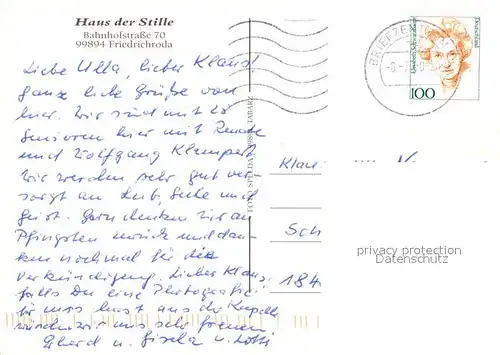 Haus der Stille
Bahnhofstraße 70
99894 Friedrichroda
Liebe Ulla, lieber Klaus!
Ganz liebe Grüße von
hier. Wir sind mit 28
Senioren hier mit Renate
und Wolfgang Klempert
Wir werden sehr gut ver-
sorgt an Leib, Seele und
Geist. Gern denken wir an
Pfingsten zurück und dan-
ken nochmal für die
Verkündigung. Lieber Klaus,
falls Du eine Photografie
für uns hast aus der Kapelle
würden wir uns sehr freuen
Gisela u. Lotti
FOTO TABARZ
BRIEFZENTRUM
Deutschland
Elisabeth Schwarzhaupt
100
Klau
Sch
184
privacy protection
Datenschutz